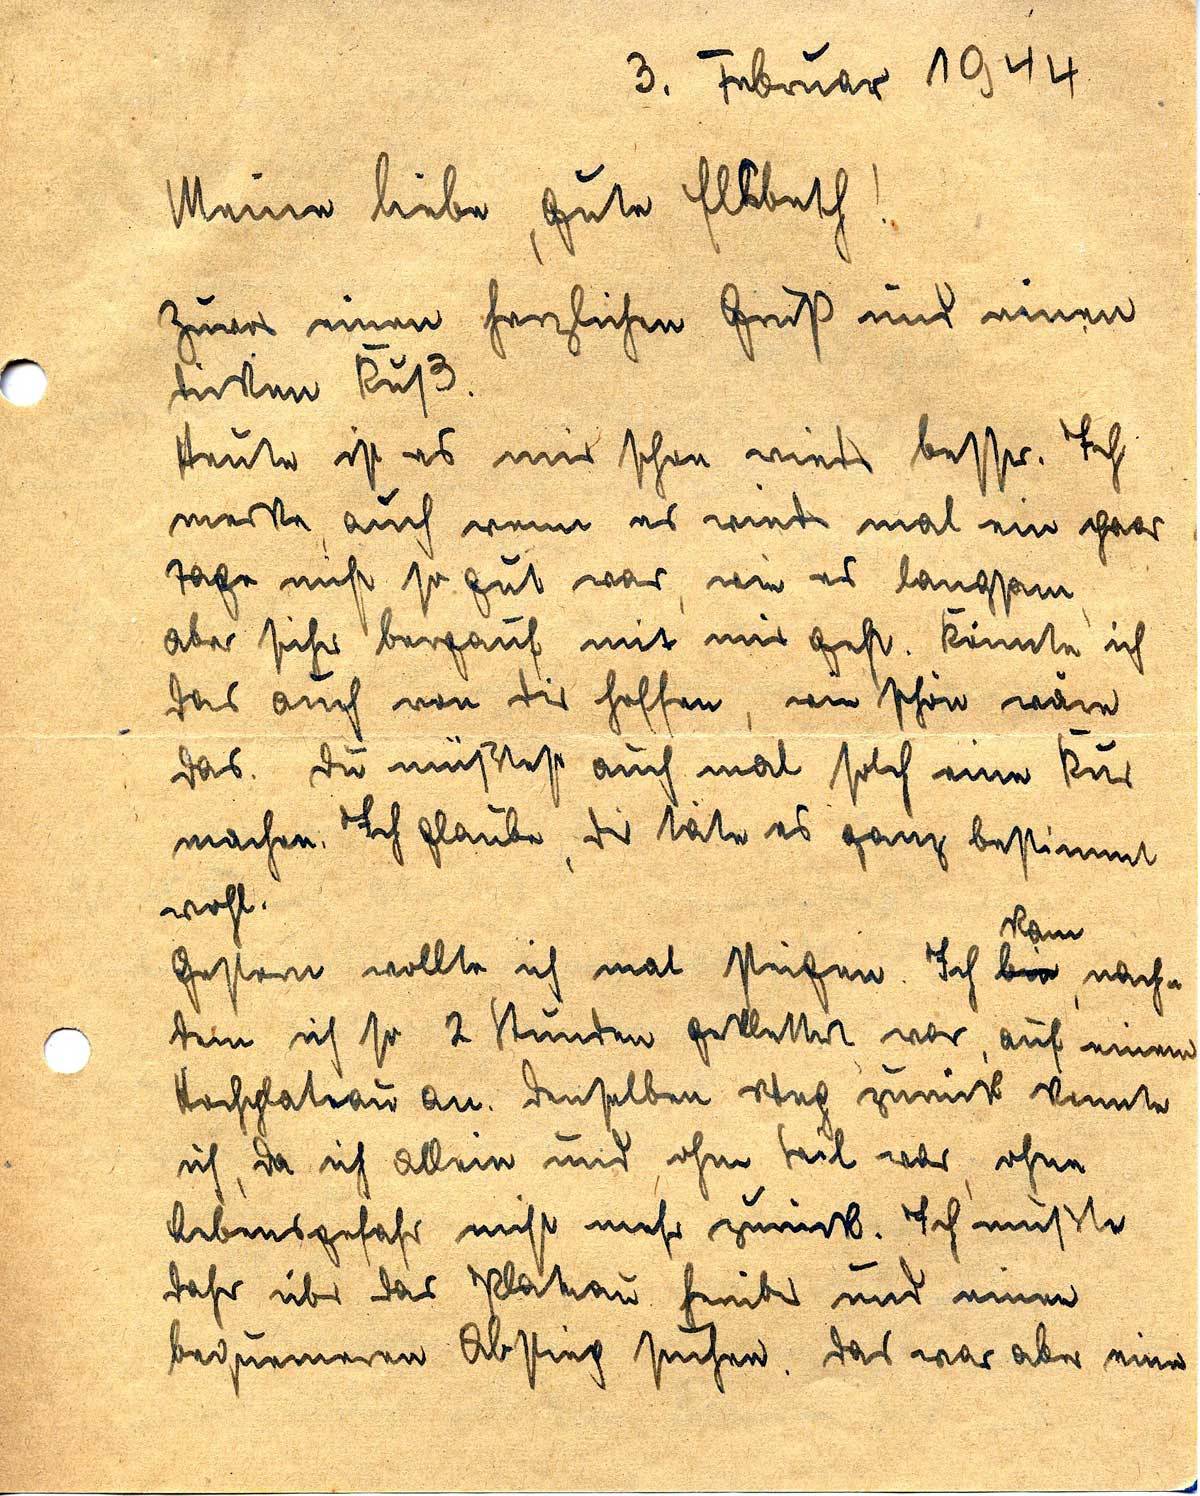 3. Februar 1944
Meine liebe, gute Elsbeth!
Zuvor einen herzlichen Gruß und einen
dicken Kuß.
Heute ist es mir schon wieder besser. Ich
merke, auch wenn es wieder mal ein paar
Tage nicht so gut war, wie es langsam,
aber sicher bergauf mit mir geht. Könnte ich
das auch von dir hoffen, wie schön wäre
das. Du müßtest auch mal solch eine Kur
machen. Ich glaube, dir täte es ganz bestimmt
wohl.
Gestern wollte ich mal steigen. Ich kam, nach-
dem ich so 2 Stunden geklettert war, auf einem
Hochplateau an. Denselben Weg zurück konnte
ich, da ich allein und ohne Seil war, ohne
Lebensgefahr nicht mehr zurück. Ich mußte
daher über das Plateau hinüber und einen
bequemeren Abstieg suchen. Das war aber eine